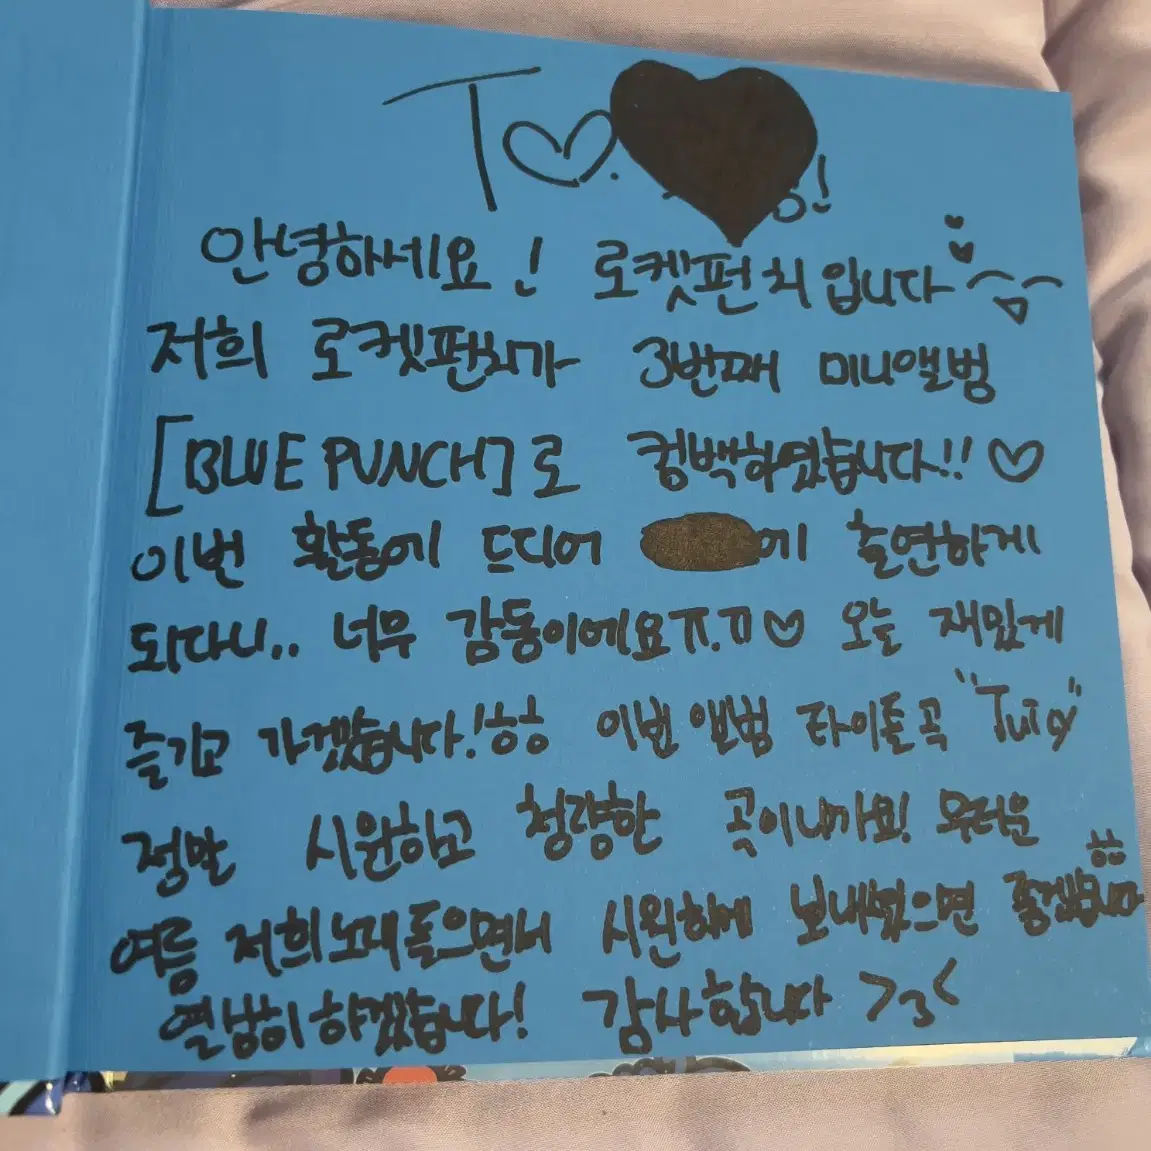 To. !
안녕하세요! 로켓펀치입니다
저희 로켓펀치가 3번째 미니앨범
[BLUE PUNCH]로 컴백하였습니다!! ♡
이번 활동에 드디어 에 출연하게
되다니.. 너무 감동이에요ㅠ.ㅠ♡ 오늘 재밌게
즐기고 가겠습니다!ㅎㅎ 이번 앨범 타이틀곡 "Juicy"
정말 시원하고 청량한 곡이니까요! 무더운
여름 저희 노래 들으면서 시원하게 보내셨으면 좋겠습니다ㅎㅎ
열심히 하겠습니다! 감사합니다 >3<